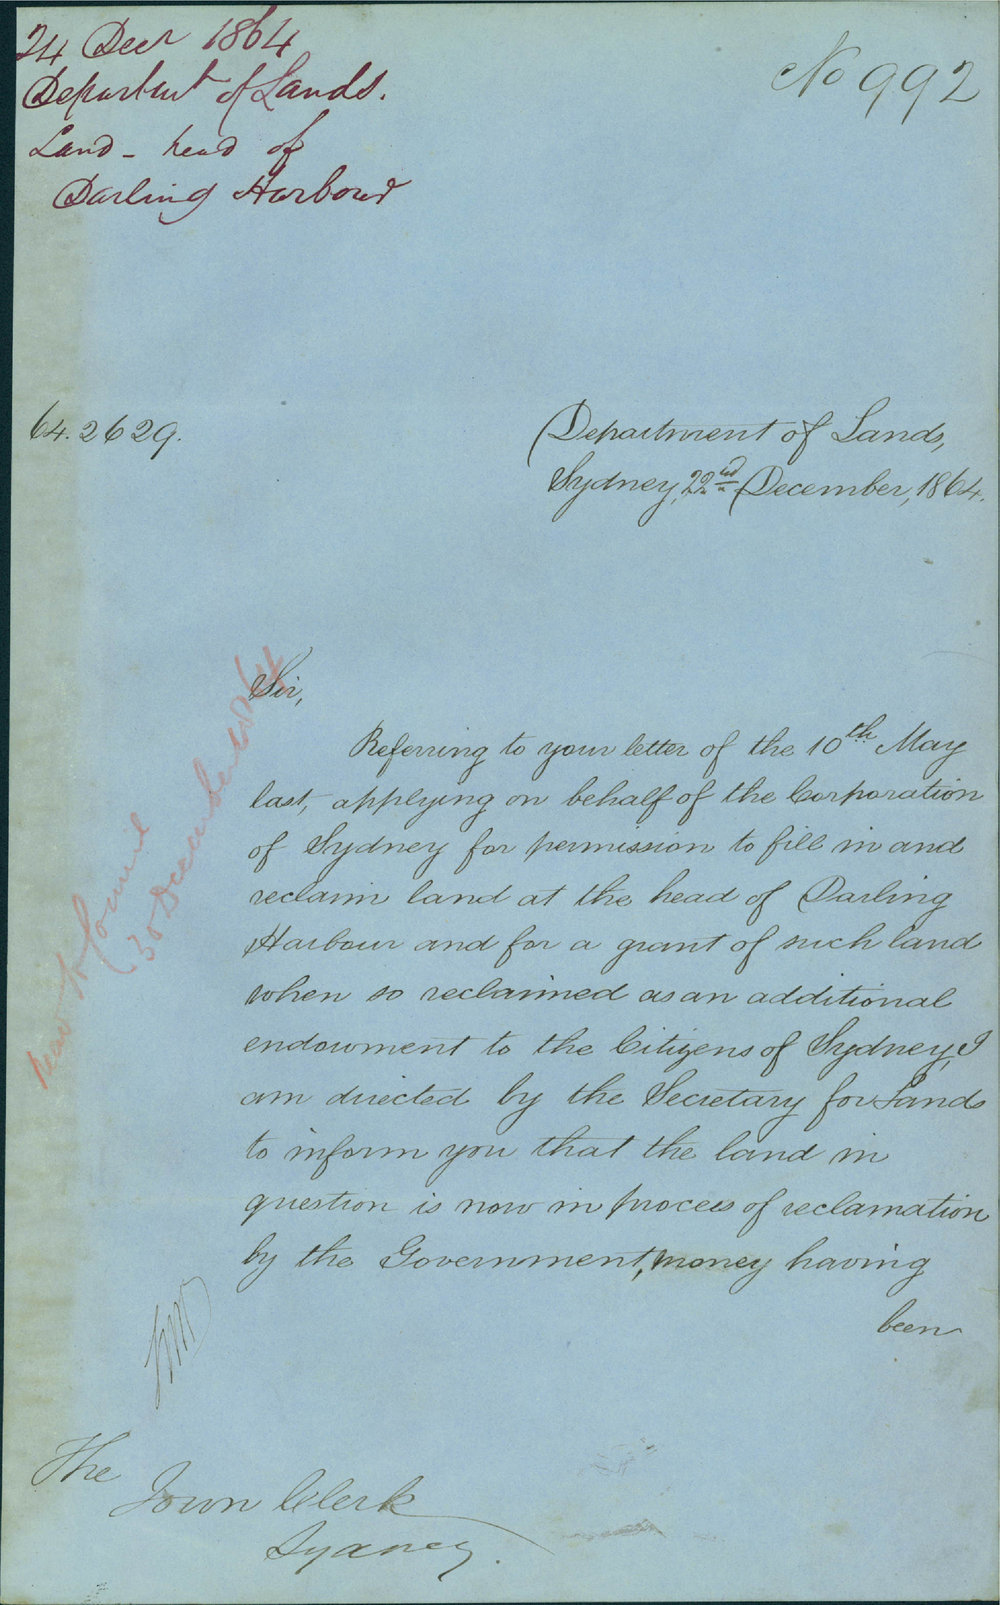 24 Decr 1864
Department of Lands.
Land - head of
Darling Harbour
No 992
64.2629.
Department of Lands,
Sydney, 22nd December, 1864.
Sir,
Referring to your letter of the 10th May
last, applying on behalf of the Corporation
of Sydney for permission to fill in and
reclaim land at the head of Darling
Harbour and for a grant of such land
when so reclaimed as an additional
endowment to the Citizens of Sydney, I
am directed by the Secretary for Lands
to inform you that the land in
question is now in process of reclamation
by the Government, money having
been
Read to Council
30 December 1864
The
Town Clerk
Sydney.